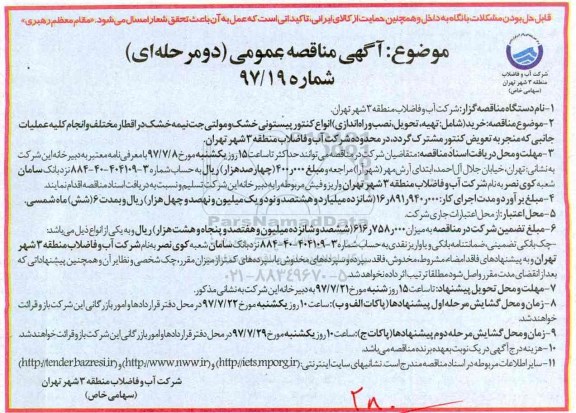 قابل حل بودن مشکلات با نگاه به داخل و همچنین حمایت از کالای ایرانی، تاکیداتی است که عمل به آن باعث تحقق شعار امسال می‌شود. «مقام معظم رهبری»
موضوع: آگهی مناقصه عمومی (دو مرحله‌ای)
شماره ۹۷/۱۹
شرکت آب و فاضلاب
منطقه ۳ شهر تهران
(سهامی خاص)
۱- نام دستگاه مناقصه گزار: شرکت آب و فاضلاب منطقه ۳ شهر تهران.
۲- موضوع مناقصه: خرید (شامل: تهیه، تحویل، نصب و راه اندازی) انواع کنتور پیستونی خشک و مولتی جت نیمه خشک در اقطار مختلف و انجام کلیه عملیات
جانبی که منجر به تعویض کنتور مشترک گردد، در محدوده شرکت آب و فاضلاب منطقه ۳ شهر تهران.
۳- مهلت و محل دریافت اسناد مناقصه: متقاضیان شرکت در مناقصه می توانند حداکثر تا ساعت ۱۵ روز یکشنبه مورخ ۹۷/۷/۸ با معرفی نامه معتبر به دبیرخانه این شرکت
به نشانی: تهران، خیابان جلال آل احمد ابتدای آرش مهر (شهر آرا) مراجعه و مبلغ ۴۰۰/۰۰۰ (چهارصد هزار) ریال به حساب شماره ۳-۴۰۴۱۰۹-۴۰-۸۸۴ نزد بانک سامان
شعبه کوی نصر به نام شرکت آب و فاضلاب منطقه ۳ شهر تهران واریز و فیش مربوطه را به دبیرخانه این شرکت تسلیم و نسبت به دریافت اسناد مناقصه اقدام نمایند.
۴- مبلغ برآورد و مدت اجرای کار: ۱۶/۸۹۱/۹۴۰/۰۰۰ (شانزده میلیارد و هشتصد و نود و یک میلیون و نهصد و چهل هزار) ریال و بمدت ۶ (شش) ماه شمسی.
۵- محل اعتبار: از محل اعتبارات جاری شرکت.
۶- مبلغ تضمین شرکت در مناقصه به میزان ۶۱۶/۷۵۸/۰۰۰ (ششصد و شانزده میلیون و هفتصد و پنجاه و هشت هزار) ریال و به یکی از انواع ذیل می باشد:
-چک بانکی تضمینی، ضمانتنامه بانکی و یا واریز نقدی به حساب شماره ۳-۴۰۴۱۰۹-۴۰-۸۸۴ نزد بانک سامان شعبه کوی نصر به نام شرکت آب و فاضلاب منطقه ۳ شهر
تهران و به پیشنهادهای فاقد امضاء مشروط، مخدوش، فاقد سپرده و سپرده‌های مخدوش یا سپرده‌های کمتر از میزان مقرر، چک شخصی و نظایر آن و همچنین پیشنهاداتی که
بعد از انقضای مدت مقرر واصل شود مطلقا ترتیب اثر داده نخواهد شد.
۷- مهلت و محل تحویل پیشنهاد: تا ساعت ۱۵ روز شنبه مورخ ۹۷/۷/۲۱ به دبیرخانه این شرکت به نشانی مذکور.
۸- زمان و محل گشایش مرحله اول پیشنهادها (پاکات الف و ب): ساعت ۱۰ روز یکشنبه مورخ ۹۷/۷/۲۲ در محل دفتر قراردادها و امور بازرگانی این شرکت باز و قرائت
خواهند شد.
۹- زمان و محل گشایش مرحله دوم پیشنهادها (پاکات ج): ساعت ۱۰ روز یکشنبه مورخ ۹۷/۷/۲۹ در محل دفتر قراردادها و امور بازرگانی این شرکت باز و قرائت خواهند شد.
۱۰- هزینه درج آگهی در یک نوبت بعهده برنده مناقصه می باشد.
۱۱- سایر اطلاعات مربوطه در اسناد مناقصه مندرج است. نشانیهای سایت اینترنتی: (http://iets.mporg.ir) و (http://www.nww.ir) و (http://tender.bazresi.ir)
شرکت آب و فاضلاب منطقه ۳ شهر تهران
(سهامی خاص)
ParsNamadData
۰۲۱-۸۸۳۴۹۶۷۰-۵
۲۸۰